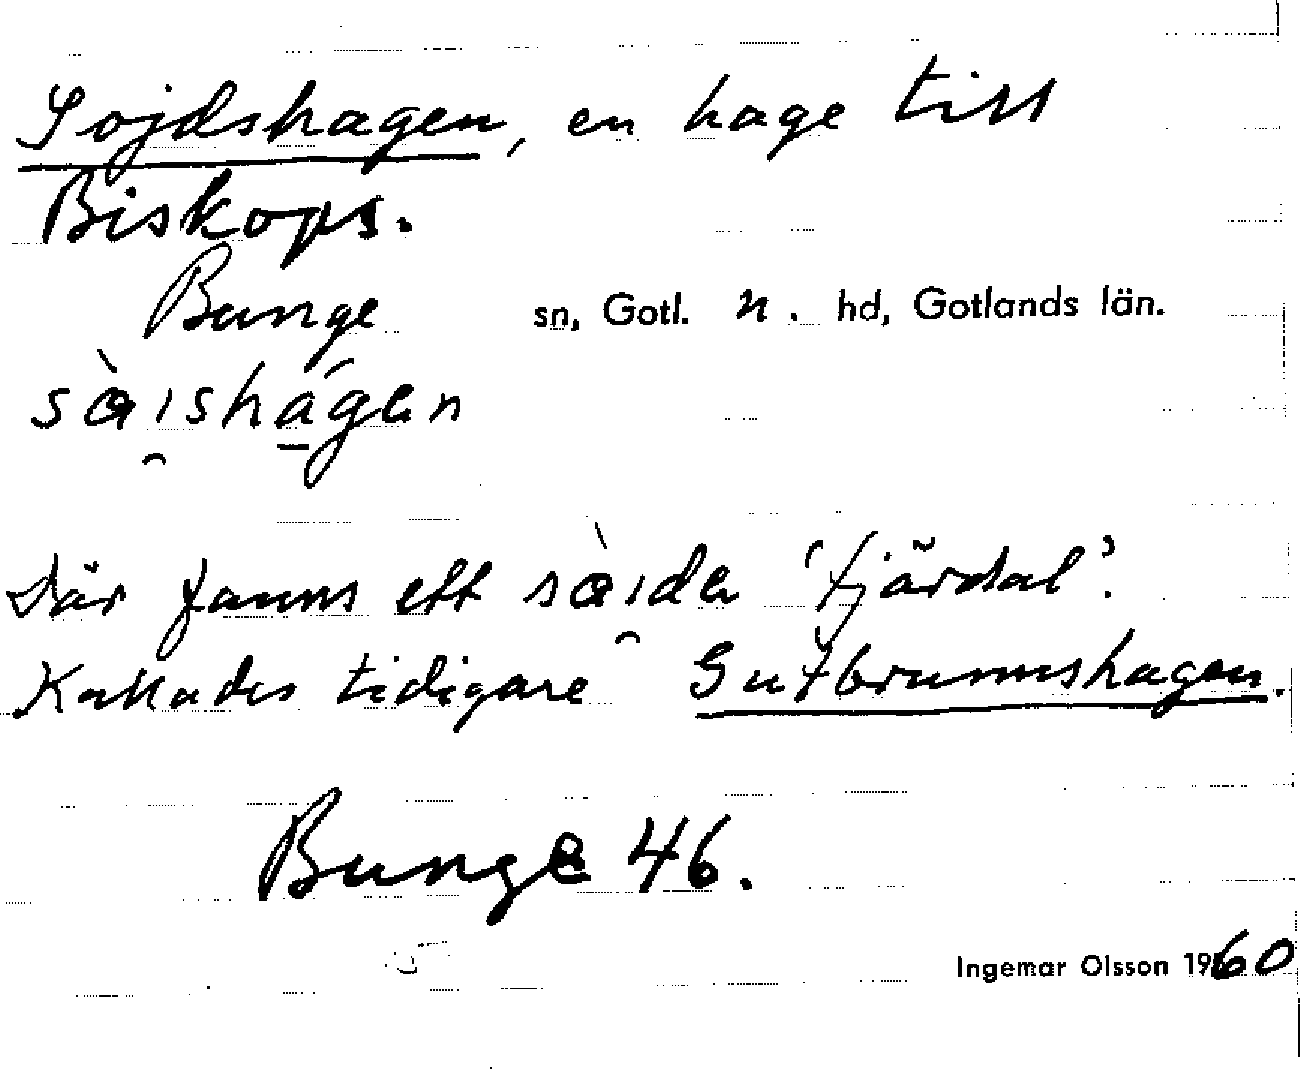 Sojdshagen, en hage till
Biskops.
Bunge sn, Gotl. n. hd, Gotlands län.
sài̯shá̱gen
Där fanns ett sài̯de 'tjärdal'.
Kallades tidigare Gutbrunnshagen.
Bunge 46.
Ingemar Olsson 1960